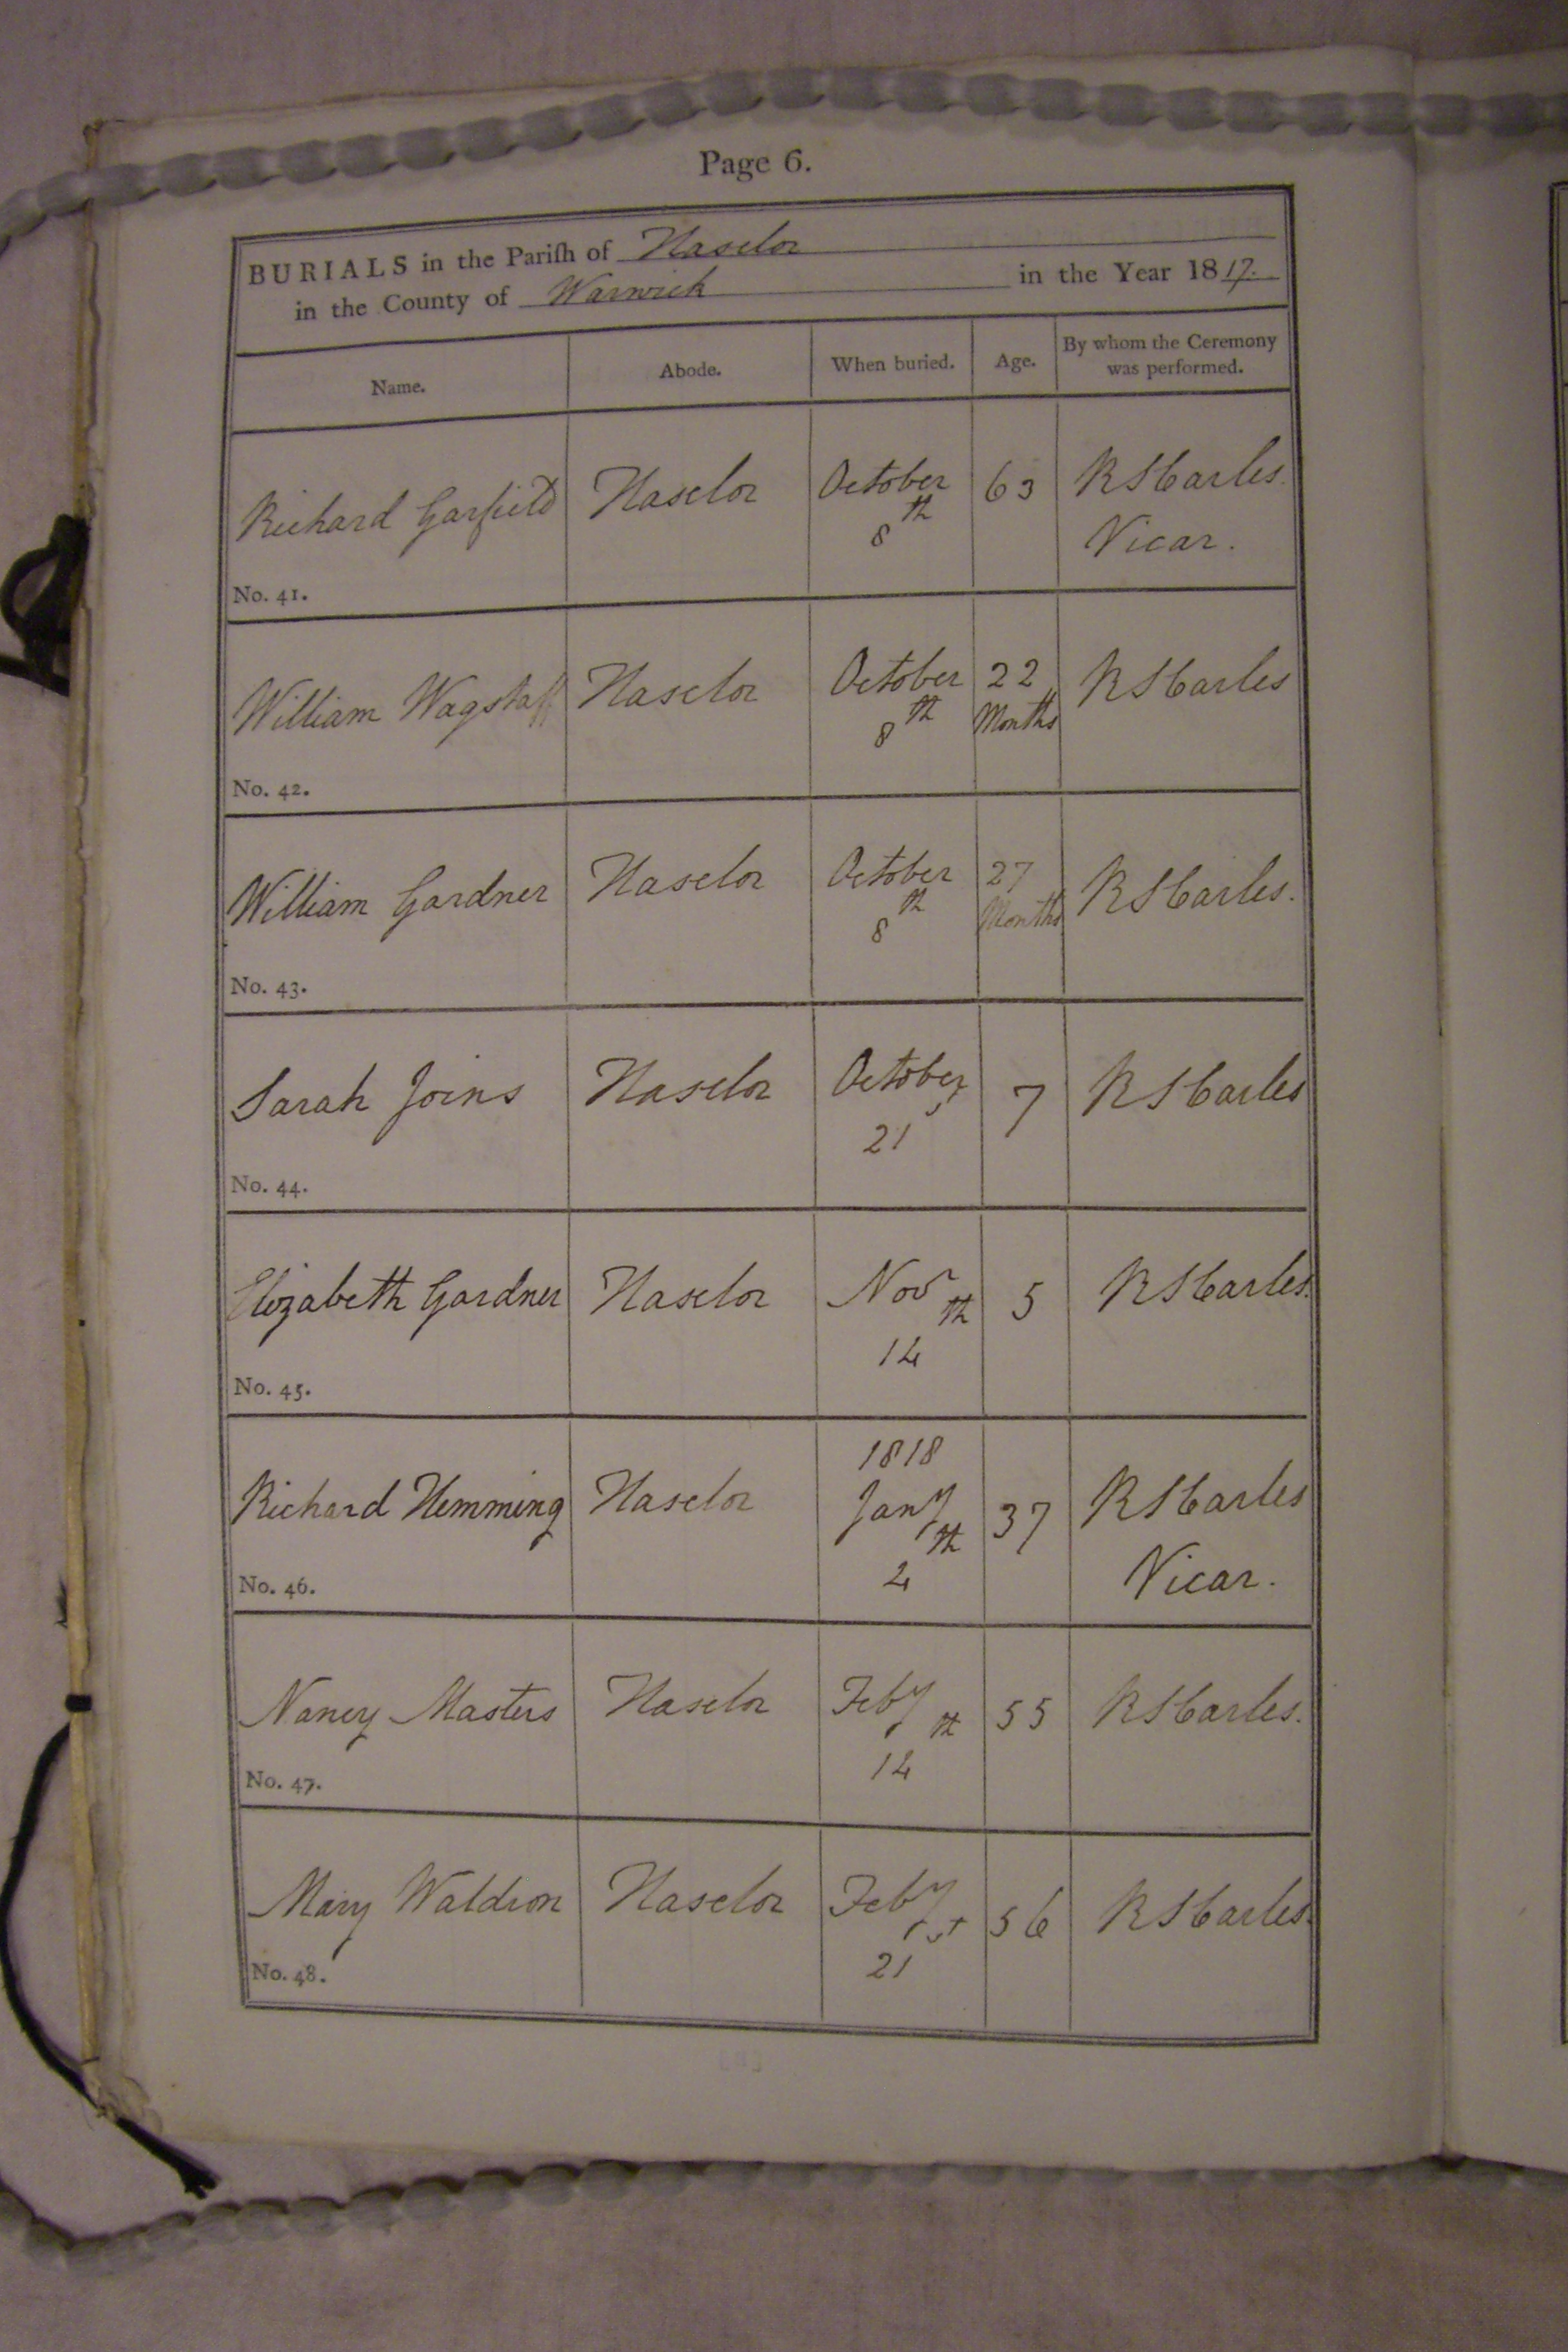 Page 6.
BURIALS in the Pariſh of Haselor
in the County of Warwick in the Year 1817.
Name. Abode. When buried. Age. By whom the Ceremony was performed.
Richard Garfield Haselor October 8th 63 R S Carles. Vicar.
No. 41.
William Wagstaff Haselor October 8th 22 Months R S Carles
No. 42.
William Gardner Haselor October 8th 27 Months R S Carles.
No. 43.
Sarah Joins Haselor October 21st 7 R S Carles
No. 44.
Elizabeth Gardner Haselor Novr 14th 5 R S Carles.
No. 45.
Richard Hemming Haselor 1818 Jany 4th 37 R S Carles Vicar.
No. 46.
Nancy Masters Haselor Feby 14th 55 R S Carles.
No. 47.
Mary Waldron Haselor Feby 21st 56 R S Carles.
No. 48.